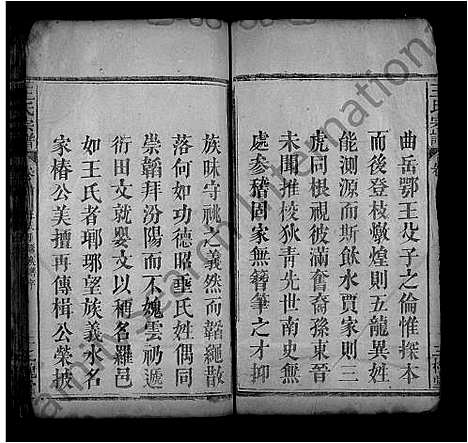 曲岳鄂王殳子之倫惟探本
而後登枝燉煌則五龍異姓
能測源而斯飲水賈家則三
虎同根視彼滿奮裔孫東晉
未聞推梭狄青先世南史無
處參稽固家無簪筆之才抑
族昧守祧之義然而韜繩散
落何如功德昭垂氏姓偶同
崇韜拜汾陽而不媿雲礽遞
衍田文就嬰文以種名羅邑
如王氏者瑘瑯望族義水名
家椿公美擅再傳楫公榮披